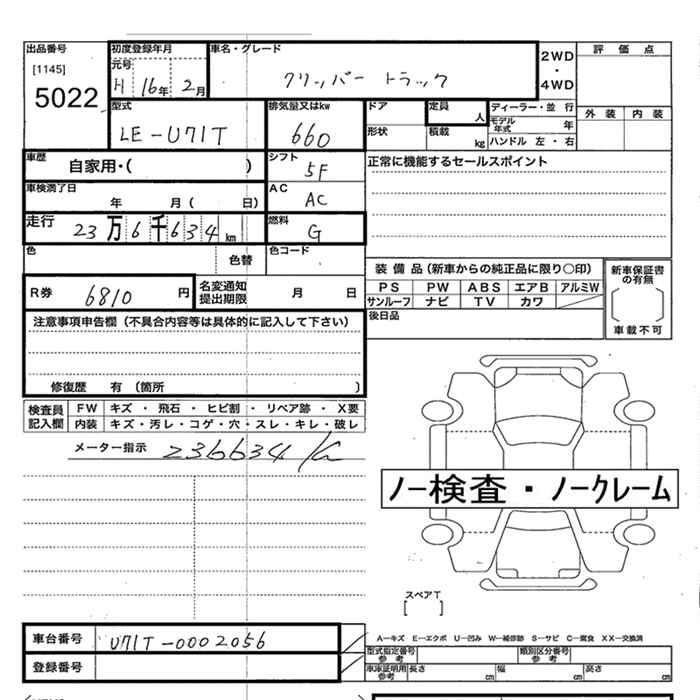 出品番号 初度登録年月 車名・グレード 2WD 評 価 点
[1145] 元号 ・
5022 H 16年 2月 クリッパー トラック 4WD
型式 排気量又はkw ドア 定員 人 ディーラー・並 行 外 装 内 装
LE-U71T 660 形状 積載 kg モデル年式 年
ハンドル 左・右
車歴 自家用・( ) シフト 5F 正常に機能するセールスポイント
車検満了日 年 月 ( 日) AC AC
走行 23万6千634km 燃料 G
色 色替 色コード
装 備 品 (新車からの純正品に限り〇印) 新車保証書の有無
R券 6810 円 名変通知提出期限 月 日 PS PW ABS エアB アルミW
サンルーフ ナビ TV カワ
注意事項申告欄 (不具合内容等は具体的に記入して下さい) 後日品 車載不可
修復歴 有 (箇所 )
検査員記入欄 FW キズ ・ 飛石 ・ ヒビ割 ・ リペア跡 ・ X要
内装 キズ・汚レ・コゲ・穴・スレ・キレ・破レ
メーター指示 236634 K
ノー検査・ノークレーム
スペアT
[ ]
車台番号 U71T-0002056 A―キズ E―エクボ U―凹み W―補修跡 S―サビ C―腐食 XX―交換済
型式指定番号 参考 類別区分番号 参考
登録番号 車庫証明用 参考 長さ cm 幅 cm 高さ cm